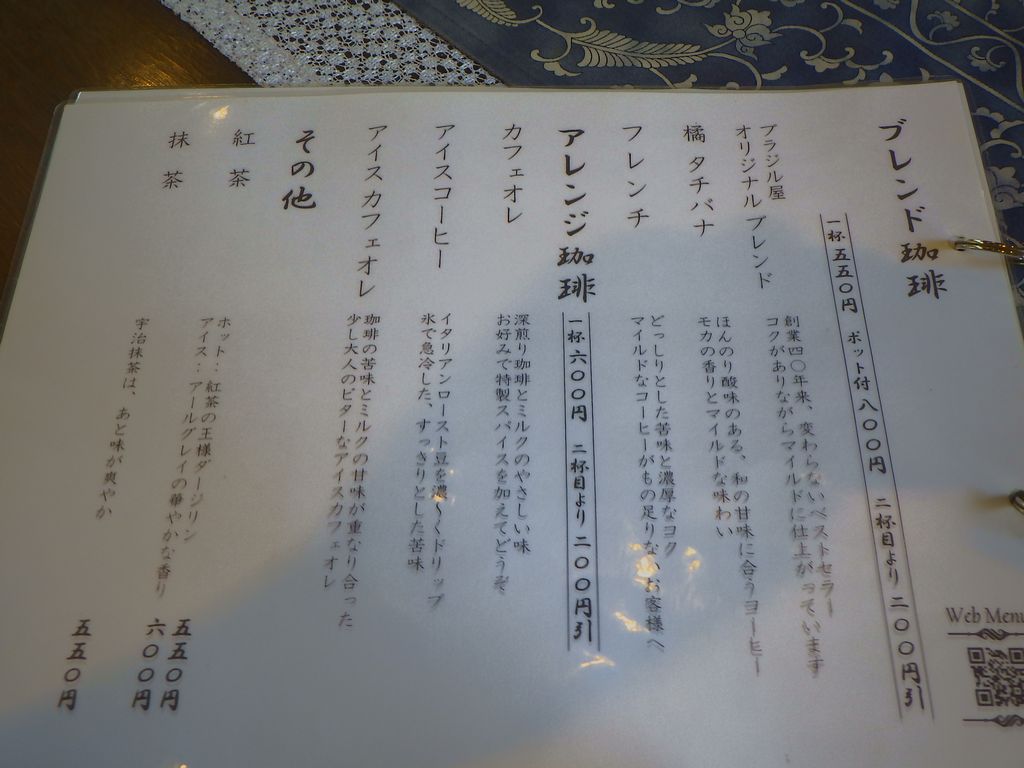 ブレンド珈琲
一杯 五五〇円 ポット付 八〇〇円 二杯目より 二〇〇円引
ブラジル屋
オリジナル ブレンド
創業四〇年来、変わらないベストセラー
コクがありながらマイルドに仕上がっています
橘 タチバナ
ほんのり酸味のある、和の甘味に合うコーヒー
モカの香りとマイルドな味わい
フレンチ
どっしりとした苦味と濃厚なコク
マイルドなコーヒーがもの足りないお客様へ
アレンジ珈琲
一杯 六〇〇円 二杯目より 二〇〇円引
カフェオレ
深煎り珈琲とミルクのやさしい味
お好みで特製スパイスを加えてどうぞ
アイスコーヒー
イタリアンロースト豆を濃〜くドリップ
氷で急冷した、すっきりとした苦味
アイスカフェオレ
珈琲の苦味とミルクの甘味が重なり合った
少し大人のビターなアイスカフェオレ
その他
紅茶
ホット：紅茶の王様ダージリン
アイス：アールグレイの華やかな香り
五五〇円
六〇〇円
抹茶
宇治抹茶は、あと味が爽やか
五五〇円
Web Menu